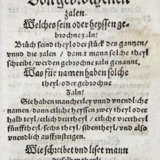 Von gebrochenen
zalen.
Welches sein oder heyssen ge-
brochne zaln?
Brüch seind theyl oder stück des gantzen,
vnnd die zalen / dem man solche theyl
schreibet/ werden gebrochne zaln genannt.
Was für namen haben solche
theyl oder gebrochne
zaln?
Sie haben mancherley vnnd
den namen/ etliche heyssen zwey theyl oder
halb teyl/etliche drittheyl / etliche vierteyl
fünfftheyl/ sechstheyl/ sibentheyl/ vnd also
vnendlich auffsteigend.
Wie schreibet vnd liset mann